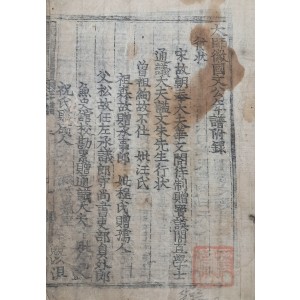 太師徽國文公年譜附錄
行狀
宋故朝奉大夫華文閣待制贈寶謨閣直學士
通議大夫謚文朱先生行狀
曾祖絢故不仕 妣汪氏
祖森故贈承事郎 妣程氏贈孺人
父松故任左丞議郎守尚書吏部員外郎
兼史館校勘累贈通議大夫
祝氏 孺人